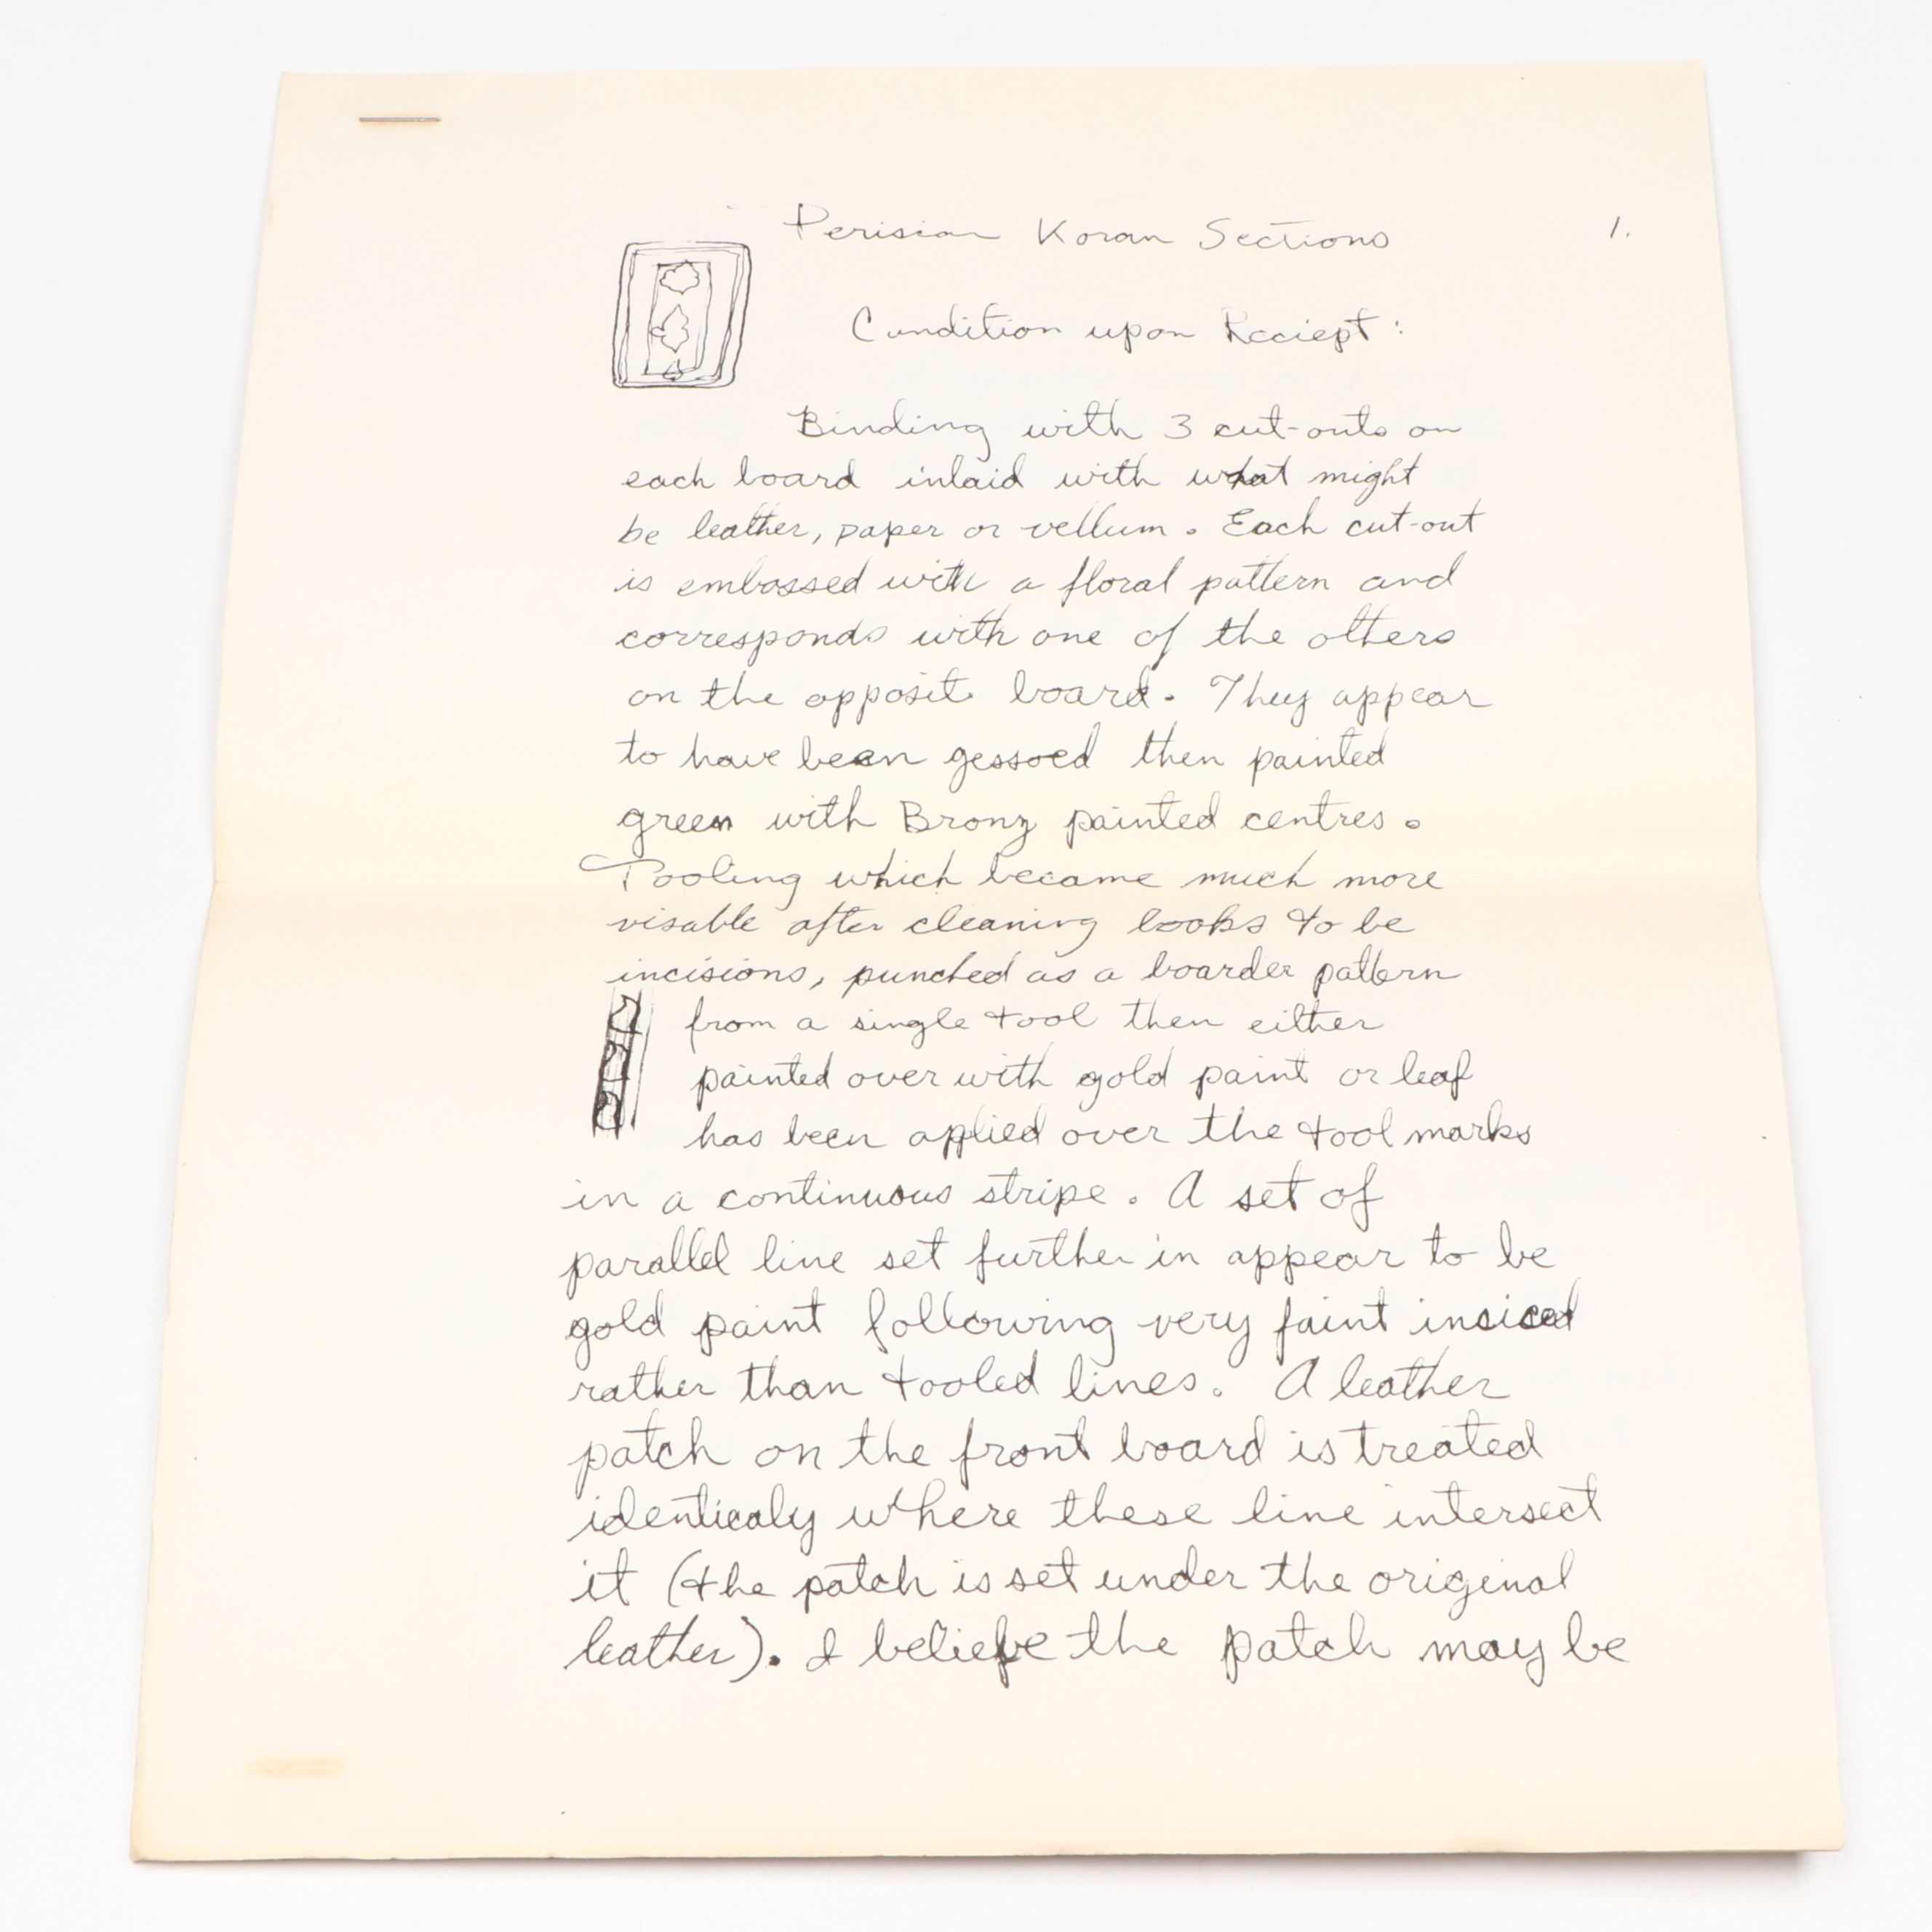 Perisian Koran Sections
1.
Condition upon Reciept:
Binding with 3 cut-outs on
each board inlaid with what might
be leather, paper or vellum. Each cut-out
is embossed with a floral pattern and
corresponds with one of the others
on the opposit board. They appear
to have been gessoed then painted
green with Bronz painted centres.
Tooling which became much more
visable after cleaning looks to be
incisions, punched as a boarder pattern
from a single tool then either
painted over with gold paint or leaf
has been applied over the tool marks
in a continuous stripe. A set of
parallel line set further in appear to be
gold paint following very faint insiced
rather than tooled lines. A leather
patch on the front board is treated
identicaly where these line intersect
it (the patch is set under the original
leather). I believe the patch may be